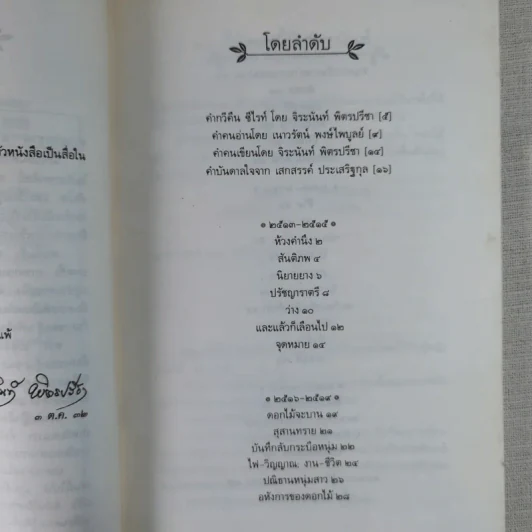 วหนังสือเป็นสื่อใน
แพ้
๓ ต.ค. ๓๒
โดยลำดับ
คำกวีคืน ซีไรท์ โดย จิระนันท์ พิตรปรีชา [๕]
คำคนอ่านโดย เนาวรัตน์ พงษ์ไพบูลย์ [๙]
คำคนเขียนโดย จิระนันท์ พิตรปรีชา [๑๔]
คำบันดาลใจจาก เสกสรรค์ ประเสริฐกุล [๑๖]
๏ ๒๕๑๓-๒๕๑๕ ๏
ห้วงคำนึง ๒
สันติภาพ ๔
นิยายยาง ๖
ปรัชญาราตรี ๘
ว่าง ๑๐
และแล้วก็เลือนไป ๑๒
จุดหมาย ๑๔
๏ ๒๕๑๖-๒๕๑๙ ๏
ดอกไม้จะบาน ๑๙
สุสานทราย ๒๑
บันทึกลับกระบือหนุ่ม ๒๒
ไฟ-วิญญาณ: งาน-ชีวิต ๒๔
ปณิธานหนุ่มสาว ๒๖
อหังการของดอกไม้ ๒๘